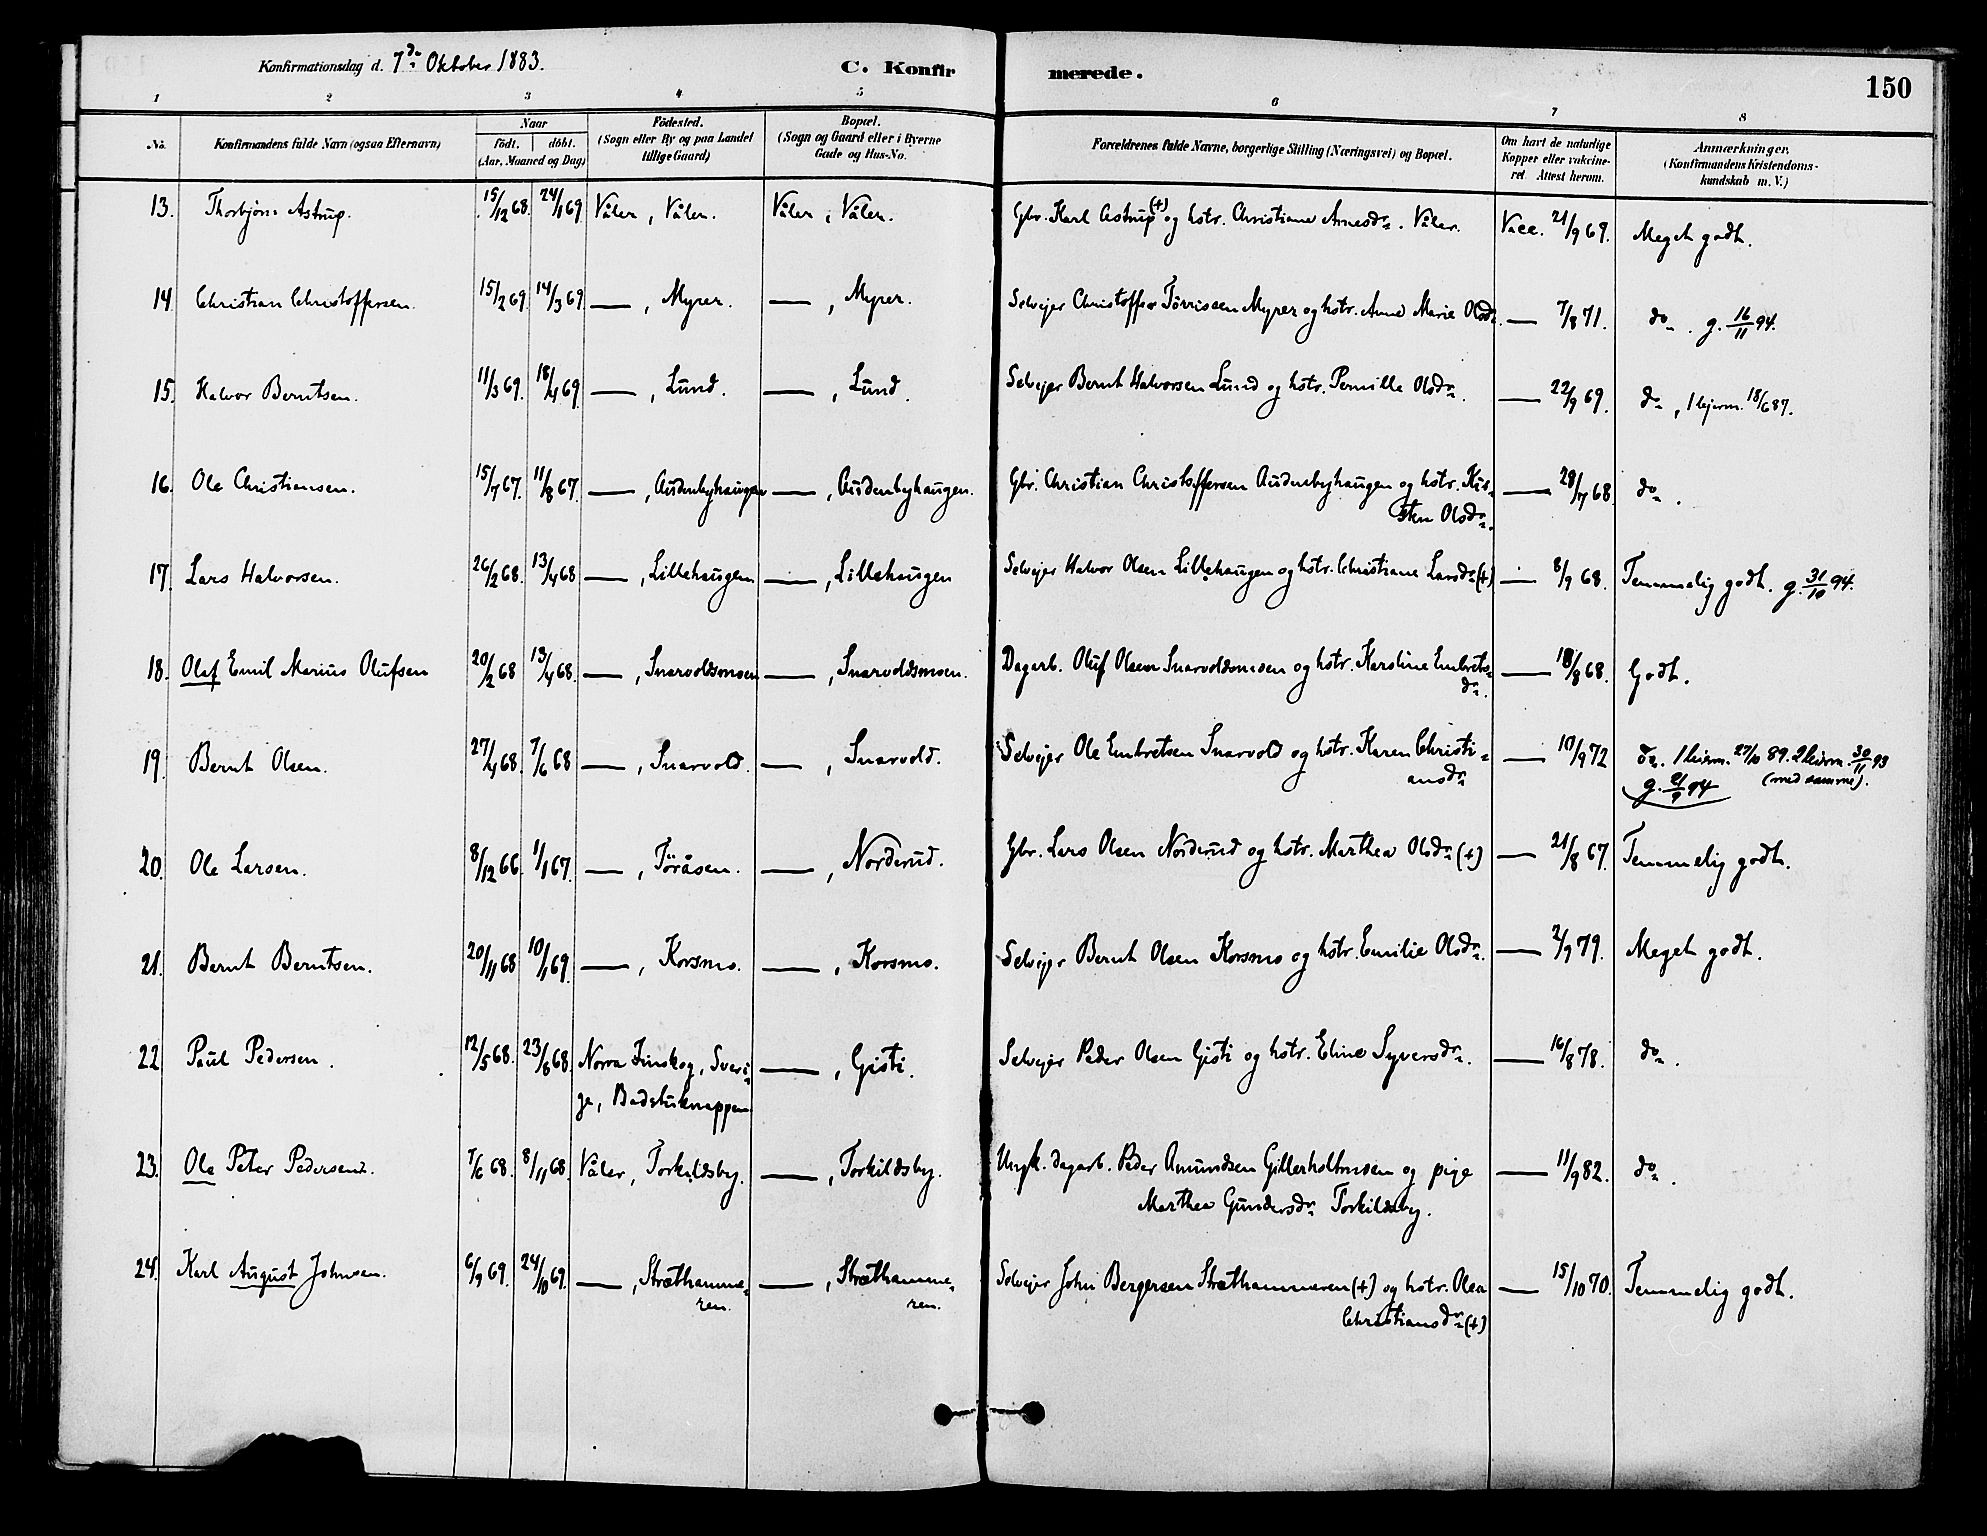 Konfirmationsdag d. 7de Oktober 1883.
C. Konfirmerede.
150
1 2 3 4 5 6 7 8
No. Konfirmandens fulde Navn (ogsaa Efternavn) Naar födt. döbt. (Aar, Maaned og Dag) Födested. (Sogn eller By og paa Landet tillige Gaard) Bopæl. (Sogn og Gaard eller i Byerne Gade og Hus-No. Forældrenes fulde Navne, borgerlige Stilling (Næringsvei) og Bopæl. Om havt de naturlige Kopper eller vakcineret Attest herom. Anmærkninger. (Konfirmandens Kristendomskundskab m. V.)
13. Thorbjörn Astrup. 15/12 68. 24/1 69 Våler, Våler. Våler, Våler. Gbr. Karl Astrup (+) og hstr. Christiane Arnesdr. Våler. Vacc. 21/9 69. Meget godt.
14. Christian Christoffersen. 15/2 69. 14/3 69 —, Myrer. —, Myrer. Selvejer Christoffer Törrissen Myrer og hstr. Anne Marie Olsdr. — 7/8 71. do. g. 16/11 94.
15. Halvor Berntsen. 11/3 69. 18/4 69. —, Lund. —, Lund. Selvejer Bernt Halvorsen Lund og hstr. Pernille Olsdr. — 22/9 69. do, 1 lejerm. 18/6 87.
16. Ole Christiansen. 15/7 67. 11/8 67. —, Audenbyhaugen —, Audenbyhaugen. Gbr. Christian Christoffersen Audenbyhaugen og hstr. Kir-
sten Olsdr. — 28/7 68 do.
17. Lars Halvorsen. 26/2 68. 13/4 68 —, Lillehaugen —, Lillehaugen Selvejer Halvor Olsen Lillehaugen og hstr. Christiane Larsdr (+) — 8/9 68. Temmelig godt. g. 31/10 94.
18. Olaf Emil Marius Olufsen 20/2 68 13/4 68. —, Snarvoldsmoen —, Snarvoldsmoen. Dagarb. Oluf Olsen Snarvoldsmoen og hstr. Karoline Embrets-
dr. — 18/8 68. Godt.
19. Bernt Olsen. 27/4 68. 7/6 68 —, Snarvold. —, Snarvold. Selvejer Ole Embretsen Snarvold og hstr. Karen Christi-
ansdr — 10/9 72 do. 1 leierm. 27/10 89. 2 leierm. 30/11 93
g. 21/9 94 (med samme).
20. Ole Larsen. 8/12 66. 1/1 67. —, Töråsen. —, Norderud. Gbr. Lars Olsen Norderud og hstr. Marthea Olsdr (+) — 21/8 67. Temmelig godt.
21. Bernt Berntsen. 20/11 68 10/1 69. —, Korsmo. —, Korsmo. Selvejer Bernt Olsen Korsmo og hstr. Emilie Olsdr. — 2/9 79. Meget godt.
22 Paul Pedersen. 12/5 68. 23/8 68. Norra Finskog, Sveri-
ge, Badstuknappen —, Gisti. Selvejer Peder Olsen Gisti og hstr. Eline Syversdr. — 16/8 78. do.
23. Ole Peter Pedersen. 7/6 68. 8/11 68. Våler, Torkildsby. —, Torkildsby. Ungk. dagarb. Peder Amundsen Gillerholtmoen og pige
Marthea Gundersdr Torkildsby. — 11/9 82. do.
24. Karl August Johnsen. 6/9 69. 24/10 69. —, Stræthamme-
ren. —, Stræthamme-
ren. Selvejer John Bergersen Stræthammeren (+) og hstr. Olea
Christiansdr (+) — 15/10 70. Temmelig godt.